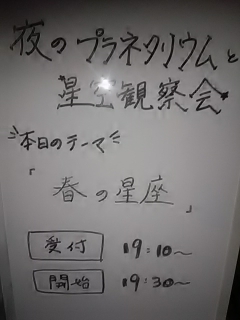 夜のプラネタリウムと
星空観察会
本日のテーマ
「春の星座」
受付 19:10～
開始 19:30～